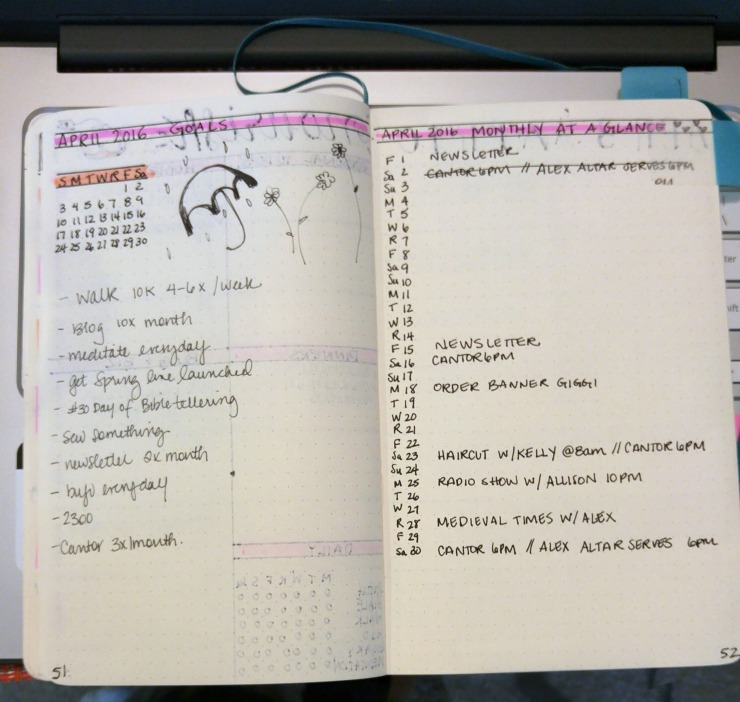 APRIL 2016 - GOALS
S M T W R F Sa
1 2
3 4 5 6 7 8 9
10 11 12 13 14 15 16
17 18 19 20 21 22 23
24 25 26 27 28 29 30
- Walk 10K 4-6x/week
- Blog 10x month
- meditate everyday
- get Spring line launched
- #30 Day of Bible lettering
- Sew Something
- newsletter 2x month
- bujo everyday
- 2300
- Cantor 3x/month.
51
APRIL 2016 MONTHLY AT A GLANCE
F 1 NEWSLETTER
Sa 2 CANTOR 6PM // ALEX ALTAR SERVES 6PM
Su 3
M 4
T 5
W 6
R 7
F 8
Sa 9
Su 10
M 11
T 12
W 13
R 14
F 15 NEWSLETTER
Sa 16 CANTOR 6PM
Su 17
M 18 ORDER BANNER GIGGI
T 19
W 20
R 21
F 22
Sa 23 HAIRCUT W/KELLY @8am // CANTOR 6PM
Su 24
M 25 RADIO SHOW W/ ALLISON 10PM
T 26
W 27
R 28 MEDIEVAL TIMES W/ ALEX
F 29
Sa 30 CANTOR 6PM // ALEX ALTAR SERVES 6PM
52